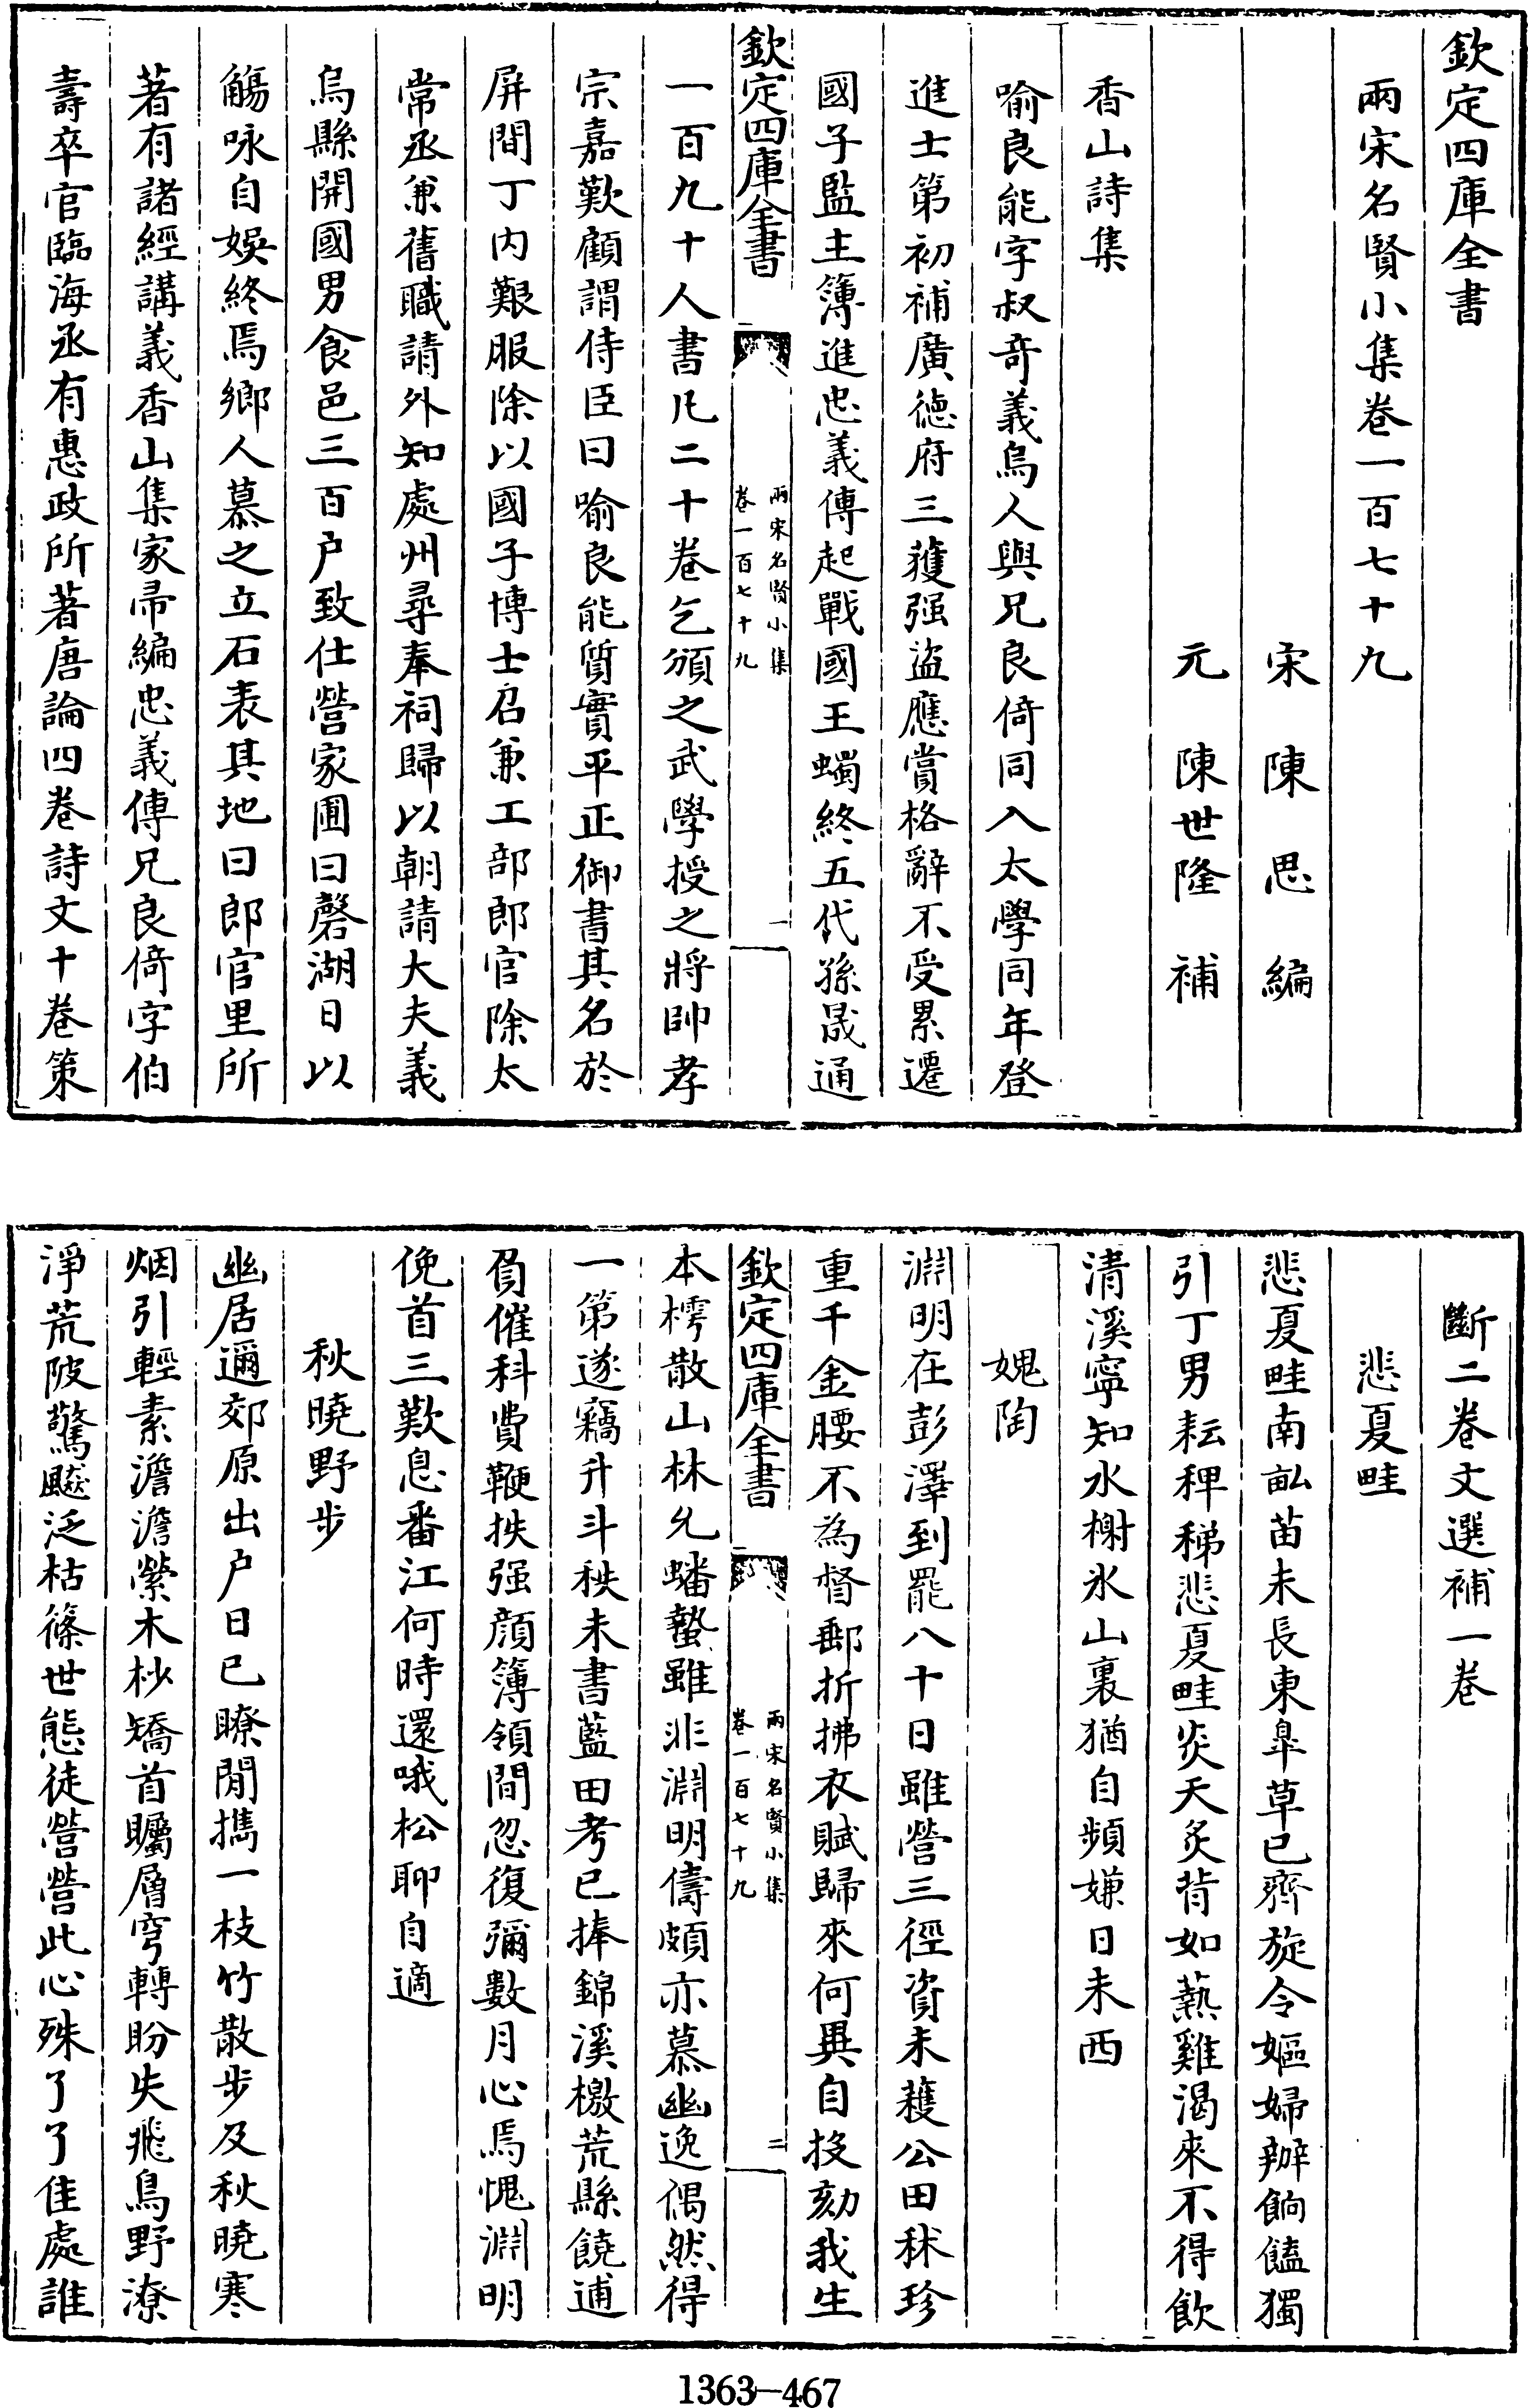 欽定四庫全書
兩宋名賢小集卷一百七十九
宋　陳　思　編
元　陳世隆　補
香山詩集
喻良能字叔奇義烏人與兄良倚同入太學同年登
進士第初補廣德府三獲强盜應賞格辭不受累遷
國子監主簿進忠義傳起戰國王蠋終五代孫晟通
欽定四庫全書
兩宋名賢小集
卷一百七十九
一
一百九十人書凡二十卷乞頒之武學授之將帥孝
宗嘉歎顧謂侍臣曰喻良能質實平正御書其名於
屏間丁内艱服除以國子博士召兼工部郎官除太
常丞兼舊職請外知處州尋奉祠歸以朝請大夫義
烏縣開國男食邑三百户致仕營家圃曰磬湖日以
觴咏自娛終焉鄉人慕之立石表其地曰郎官里所
著有諸經講義香山集家帚編忠義傳兄良倚字伯
壽卒官臨海丞有惠政所著唐論四卷詩文十卷策
斷二卷文選補一卷
悲夏畦
悲夏畦南畝苗未長東臯草已齊旋令嫗婦辦餉饁獨
引丁男耘稗稊悲夏畦炎天炙背如爇雞渴來不得飲
清溪寧知水榭氷山裏猶自頻嫌日未西
媿陶
淵明在彭澤到罷八十日雖營三徑資未蒦公田秫珍
重千金腰不為督郵折拂衣賦歸來何異自投劾我生
欽定四庫全書
兩宋名賢小集
卷一百七十九
二
本樗散山林允蟠蟄雖非淵明儔頗亦慕幽逸偶然得
一第遂竊升斗秩未書藍田考已捧錦溪檄荒縣饒逋
負催科費鞭抶强顔簿領間忽復彌數月心焉愧淵明
俛首三歎息番江何時還哦松聊自適
秋曉野步
幽居邇郊原出户日已瞭閒攜一枝竹散步及秋曉寒
烟引輕素澹澹縈木杪矯首矚層穹轉盼失飛鳥野潦
淨荒陂驚飇泛枯篠世態徒營營此心殊了了佳處誰
1363—467